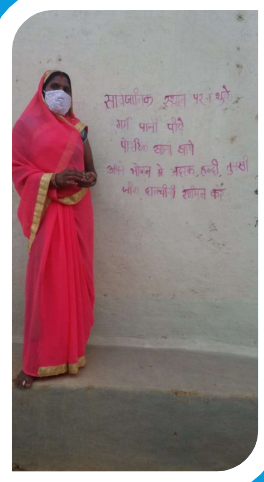 सार्वजनिक स्थान पर न थूके
गर्म पानी पीये
पौष्टिक खाना खाये
अपने भोजन में अदरक, हल्दी, तुलसी
जीरा, दालचीनी शामिल करें